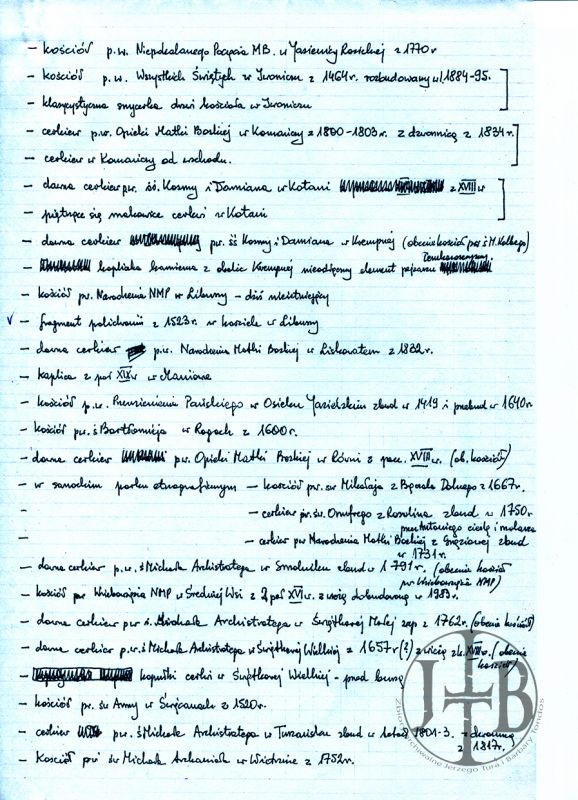 - kościół p.w. Niepokalanego Poczęcia MB. w Jasienicy Rosielnej z 1770 r
- kościół p.w. Wszystkich Świętych w Iwoniczu z 1464 r. rozbudowany w 1884-95.
- klasycystyczna snycerka drzwi kościoła w Iwoniczu
- cerkiew p.w. Opieki Matki Boskiej w Komańczy z 1800-1803 r. z dzwonnicą z 1834 r.
- cerkiew w Komańczy od wschodu.
- dawna cerkiew pw. śś. Kosmy i Damiana w Kotani z XVIII w
- piętrzące się makowice cerkwi w Kotani
- dawna cerkiew pw. śś Kosmy i Damiana w Krempnej (obecnie kościół pw ś M. Kolbego)
- kapliczka kamienna z okolic Krempnej nieodłączny element pejzażu łemkowszczyzny
- kościół pw. Narodzenia NMP w Libuszy - dziś nieistniejący
✓ - fragment polichromii z 1523 r. w kościele w Libuszy
- dawna cerkiew p.w. Narodzenia Matki Boskiej w Liskowatem z 1832 r.
- kaplica z poł XIX w w Maniowie
- kościół p.w. Przemienienia Pańskiego w Osieku Jasielskim zbud w 1419 i przebud w 1640 r.
- kościół pw. ś Bartłomieja w Rogach z 1600 r.
- dawna cerkiew pw. Opieki Matki Boskiej w Równi z pocz. XVIII w. (ob. kościół)
- w sanockim parku etnograficznym - kościół pw. św Mikołaja z Bączala Dolnego z 1667 r.
- - cerkiew pw. św. Onufrego z Rosolina zbud w 1750 r.
przez Antoniego cieślę i malarza
- - cerkiew pw Narodzenia Matki Boskiej z Grąziowej zbud
w 1731 r.
- dawna cerkiew p.w. ś Michała Archistratega w Smolniku zbud w 1791 r. (obecnie kościół
pw Wniebowzięcia NMP)
- kościół pw Wniebowzięcia NMP w Średniej Wsi z 2 poł XVI w. z wieżą dobudowaną w 1983 r.
- dawna cerkiew pw ś. Michała Archistratega w Świątkowej Małej zap z 1762 r. (obecnie kościół)
- dawna cerkiew p.w. ś Michała Archistratega w Świątkowej Wielkiej z 1657 r (?) z wieżą z k. XVIII w. (obecnie
kościół)
- kopułki cerkwi w Świątkowej Wielkiej - przed burzą
- kościół pw. św Anny w Święcanach z 1520 r.
- cerkiew pw. ś Michała Archistratega w Turzańsku zbud w latach 1801-3. - dzwonnica
z 1817 r.
- kościół pw św Michała Archanioła w Widaczu z 1752 r.
JTB
Zbiory Archiwalne Jerzego Tura i Barbary Tondos